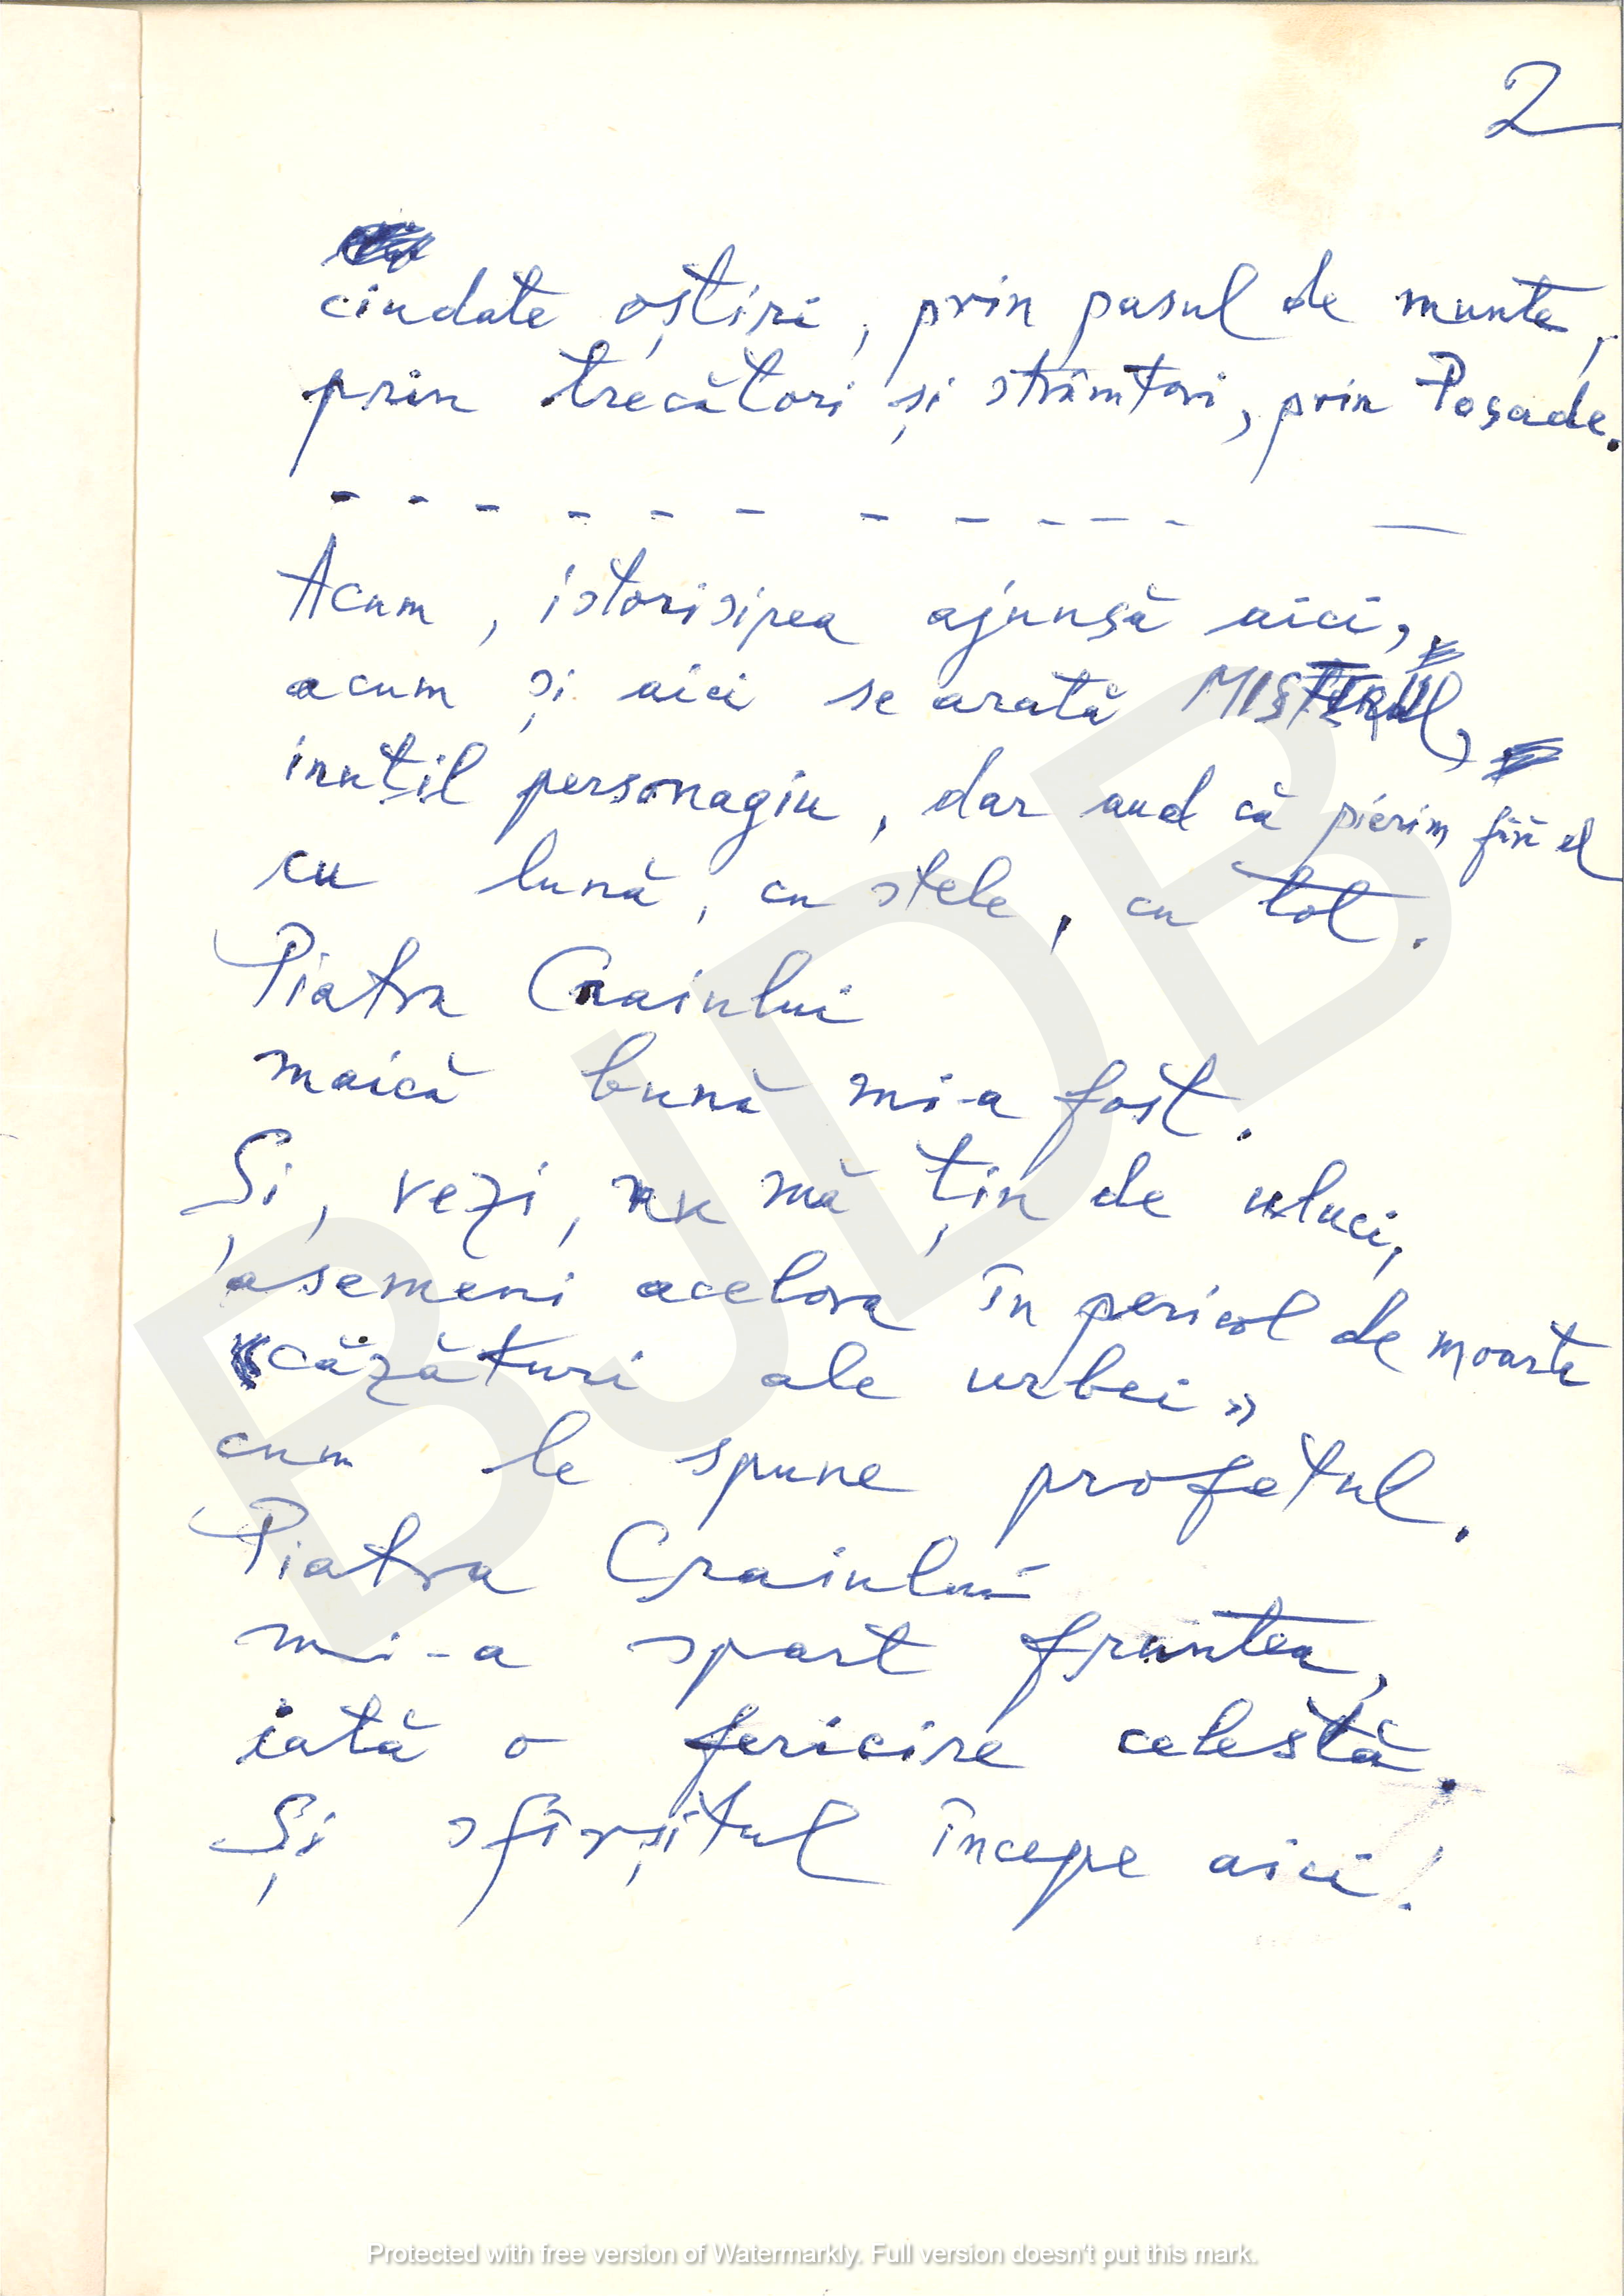 2
ciudate oștiri, prin pasul de munte,
prin trecători și strâmtori, prin Posade.
- - - - - - - - - - - -
Acum, istorisirea ajunsă aici,
acum și aici se arată MISTERUL,
inutil personagiu, dar aud că pierim fără el
cu lună, cu stele, cu tot.
Piatra Craiului
maică bună mi-a fost.
Și, vezi, nu mă țin de uluci,
asemeni acelora în pericol de moarte
«căzături ale urbei»
cum le spune profetul.
Piatra Craiului
mi-a spart fruntea,
iată o fericire celestă.
Și sfîrșitul începe aici!
BJDB
Protected with free version of Watermarkly. Full version doesn't put this mark.